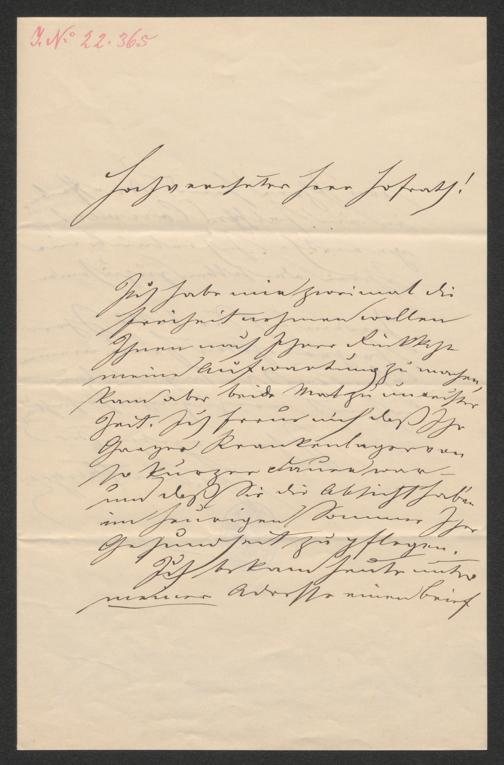 J. No 22.365
Hochverehrter Herr Hofrath!
Ich habe mir zweimal die
Freiheit nehmen wollen
Ihnen nach Ihrer Rückkehr
meine Aufwartung zu machen,
kam aber beide Mal zu unrechter
Zeit. Ich freue mich daß Ihr
Ganzes Krankenlager von
so kurzer Dauer war –
und daß Sie die Absicht haben
im heurigen Sommer Ihre
Gesundheit zu pflegen.
Ich bekam heute unter
meiner Adresse einen Brief